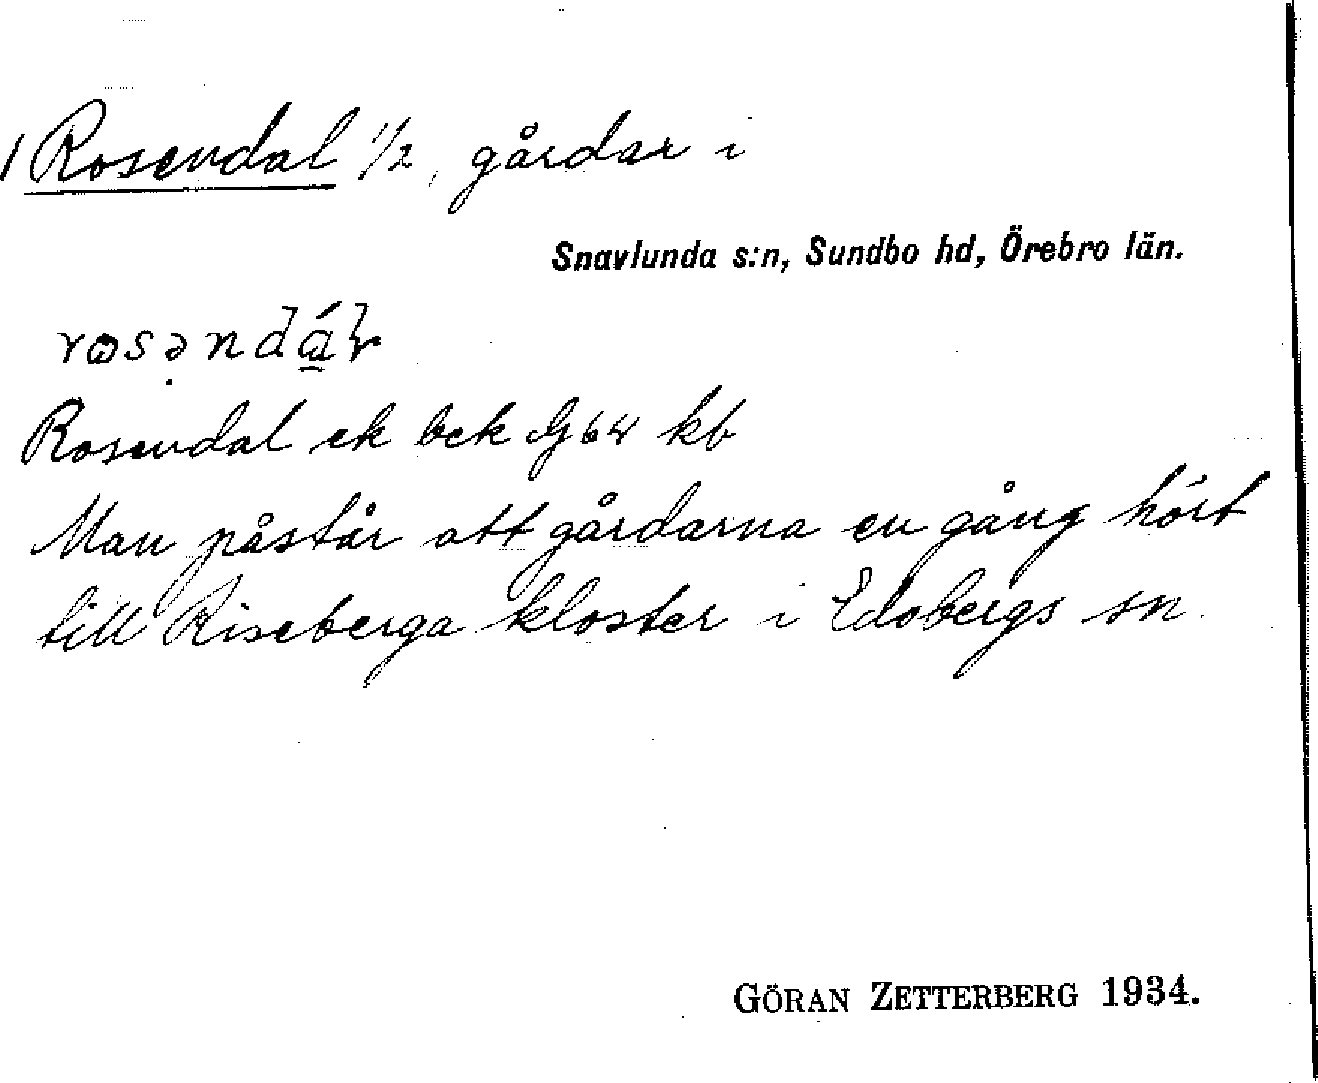 / Rosendal 1/2, gårdar i
Snavlunda s:n, Sundbo hd, Örebro län.
Rosendal ek bek G64 kb
Man påstår att gårdarna en gång hört
till Riseberga kloster i Edsbergs sn.
GÖRAN ZETTERBERG 1934.